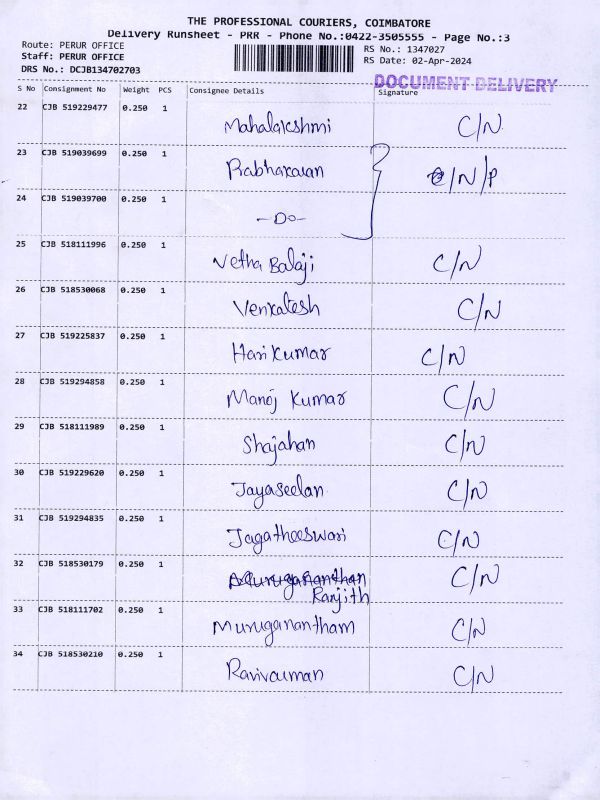 THE PROFESSIONAL COURIERS, COIMBATORE
Delivery Runsheet - PRR - Phone No.:0422-3505555 - Page No.:3
Route: PERUR OFFICE RS No.: 1347027
Staff: PERUR OFFICE RS Date: 02-Apr-2024
DRS No.: DCJB134702703
DOCUMENT DELIVERY
S No Consignment No Weight PCS Consignee Details Signature
22 CJB 519229477 0.250 1 Mahalakshmi C/N
23 CJB 519039699 0.250 1 Prabhakaran C/N/P
24 CJB 519039700 0.250 1 -Do-
25 CJB 518111996 0.250 1 Vetha Balaji C/N
26 CJB 518530068 0.250 1 Venkatesh C/N
27 CJB 519225837 0.250 1 Hari Kumar C/N
28 CJB 519294858 0.250 1 Manoj Kumar C/N
29 CJB 518111989 0.250 1 Shajahan C/N
30 CJB 519229620 0.250 1 Jayaseelan C/N
31 CJB 519294835 0.250 1 Jagatheeswari C/N
32 CJB 518530179 0.250 1 C/N
Ranjith
33 CJB 518111702 0.250 1 Muruganantham C/N
34 CJB 518530210 0.250 1 C/N